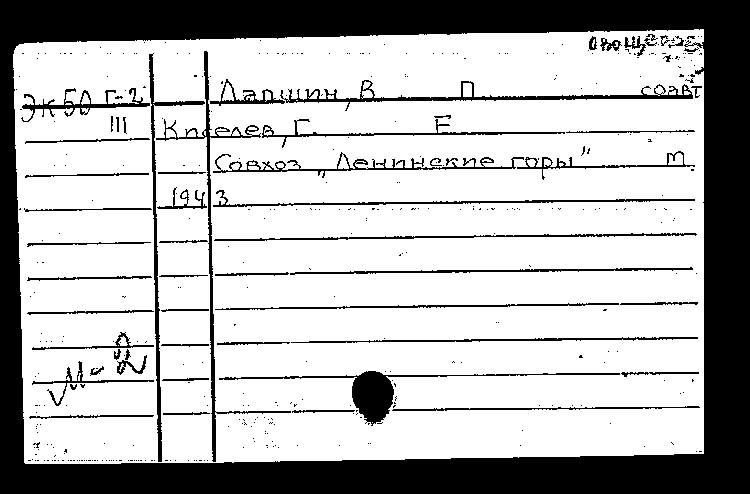 Эк50 Г-2 Лапшин, В П соавт
III Киселев, Г. Е
Совхоз „Ленинские горы" м.
1943
М-2